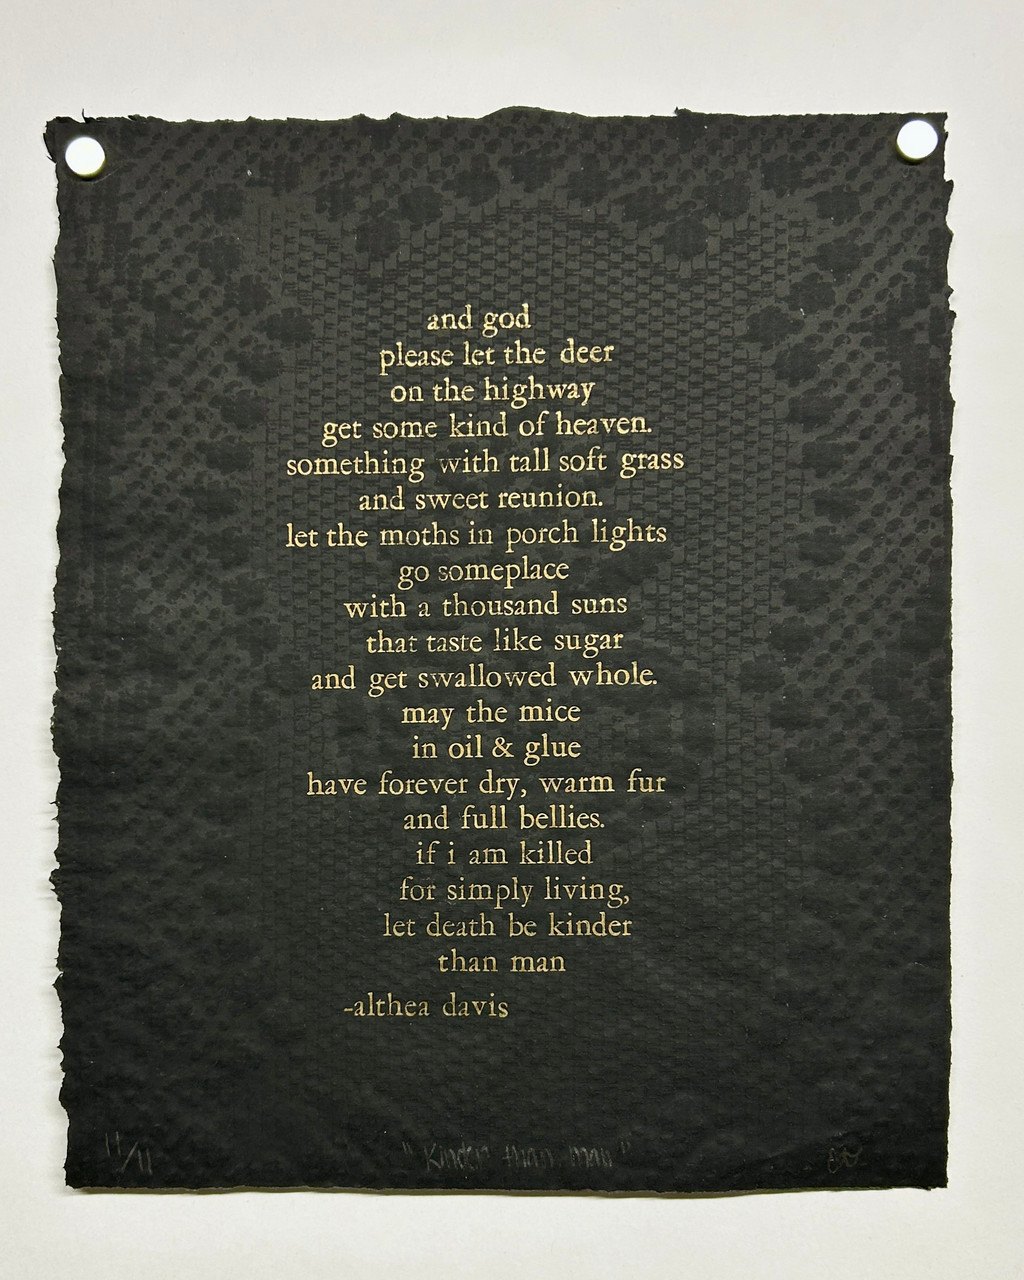 and god
please let the deer
on the highway
get some kind of heaven.
something with tall soft grass
and sweet reunion.
let the moths in porch lights
go someplace
with a thousand suns
that taste like sugar
and get swallowed whole.
may the mice
in oil & glue
have forever dry, warm fur
and full bellies.
if i am killed
for simply living,
let death be kinder
than man
-althea davis
11/11 "Kinder than man"